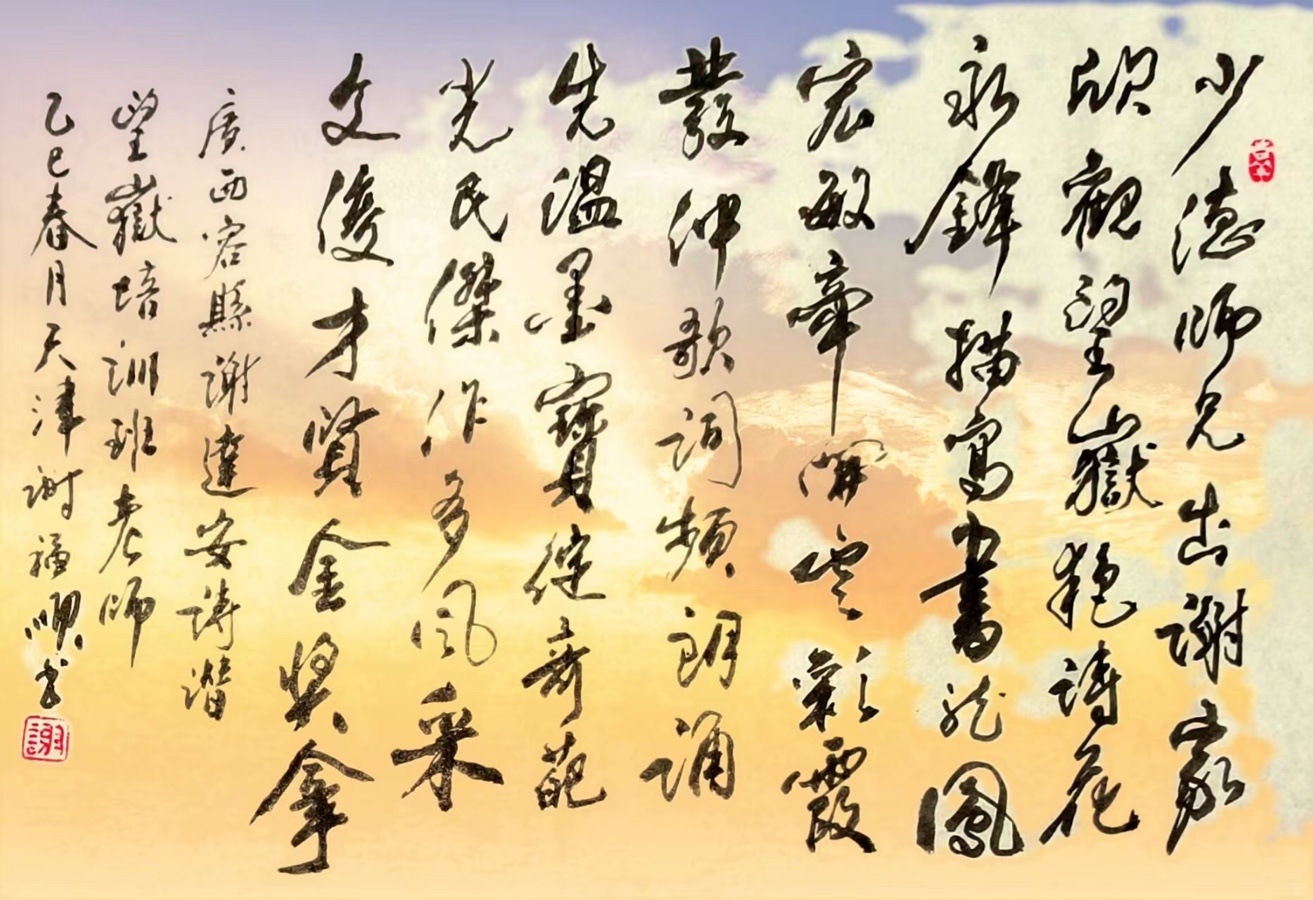 少德師兄出謝家
欣觀望嶽艷詩花
永鋒描寫書龍鳳
宏敏牽開雲彩霞
發仲歌詞頻朗誦
先溫墨寶綻奇葩
光民傑作多風采
文俊才賢金獎拿
廣西容縣謝達安詩
望嶽培訓班老師
乙巳春月天津謝福順書
謝